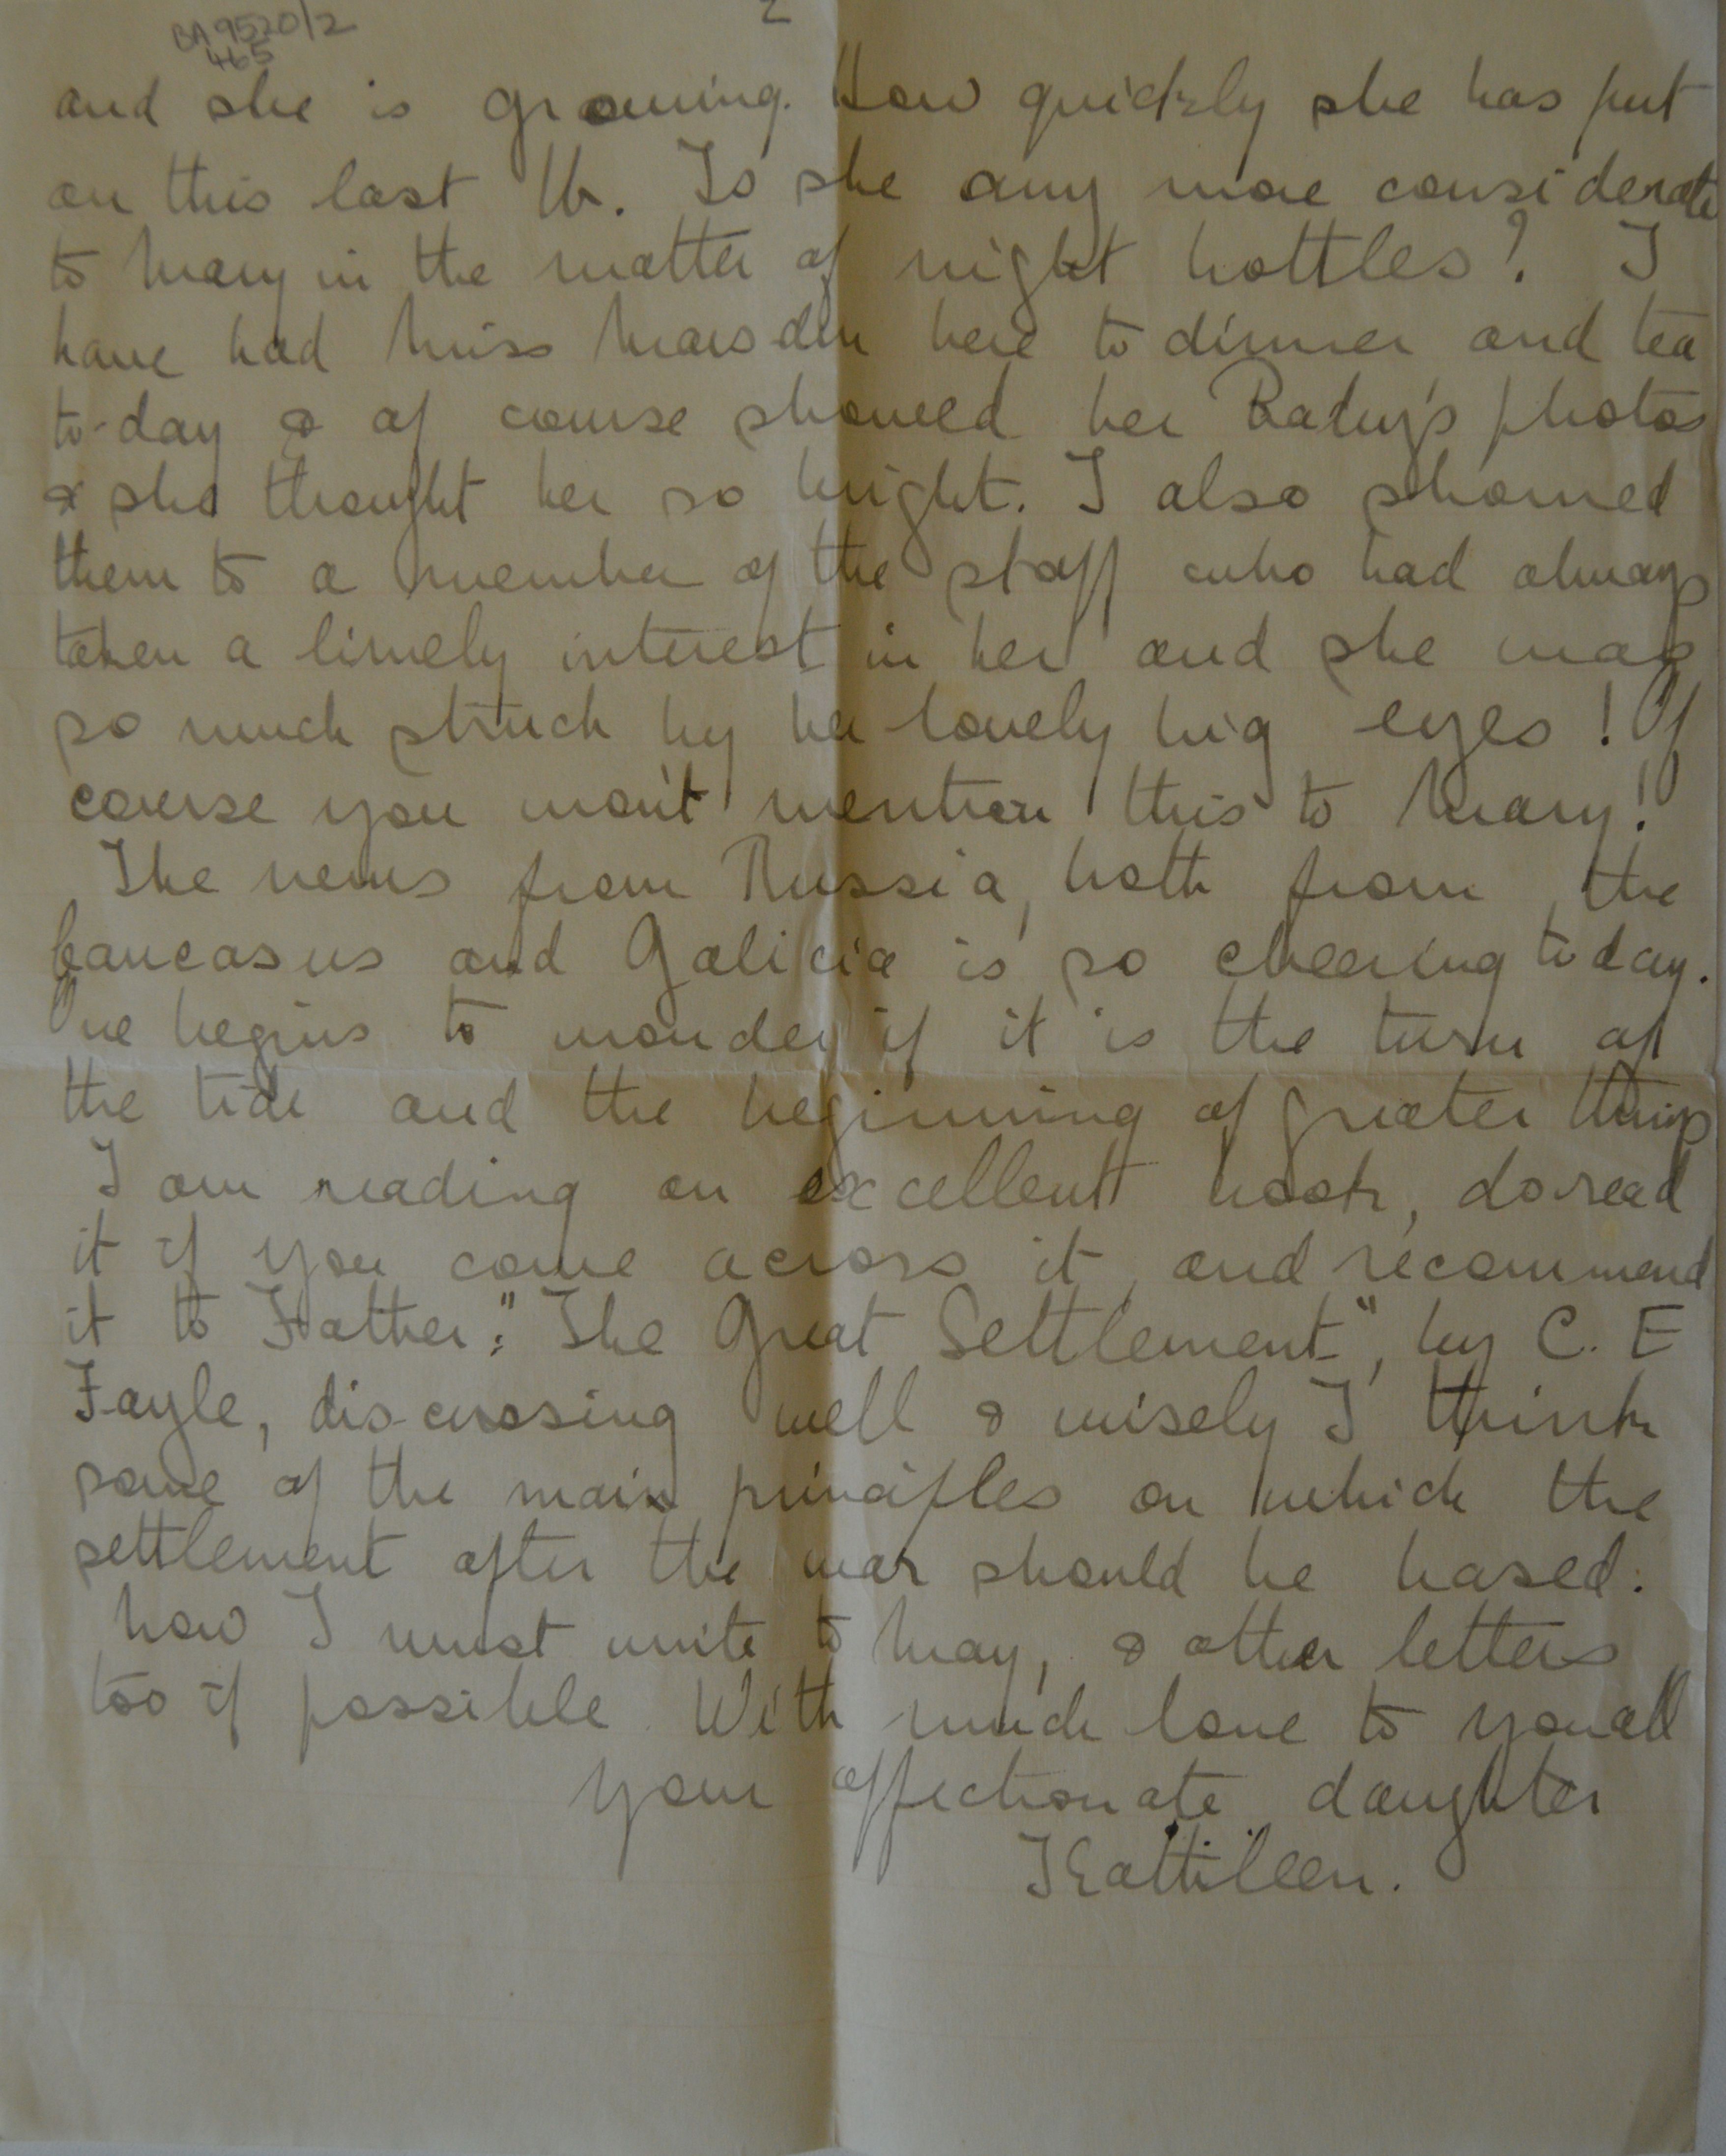 BA 9520/2
465
2
and she is growing. How quickly she has put
on this last lb. Is she any more considerate
to Mary in the matter of night bottles? I
have had Miss Marsden here to dinner and tea
to-day & of course showed her Baby's photos
& she thought her so bright. I also showed
them to a member of the staff who had always
taken a lively interest in her and she was
so much struck by her lovely big eyes! Of
course you won't mention this to Mary!
The news from Russia, both from the
Caucasus and Galicia is so cheering today.
One begins to wonder if it is the turn of
the tide and the beginning of greater things
I am reading an excellent book, do read
it if you come across it, and recommend
it to Father: "The Great Settlement", by C. E
Fayle, discussing well & wisely I think
some of the main principles on which the
settlement after the war should be based.
Now I must write to May, & other letters
too if possible. With much love to you all
your affectionate daughter
Kathleen.